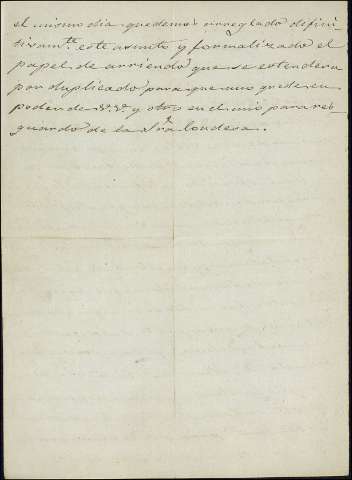 el mismo dia quedemos arreglado defini-
tivam.te este asunto y formalizado el
papel de arriendo que se estendera
por duplicado para que uno quede en
poder de V. V. y otro en el mio para res-
guardo de la Sra